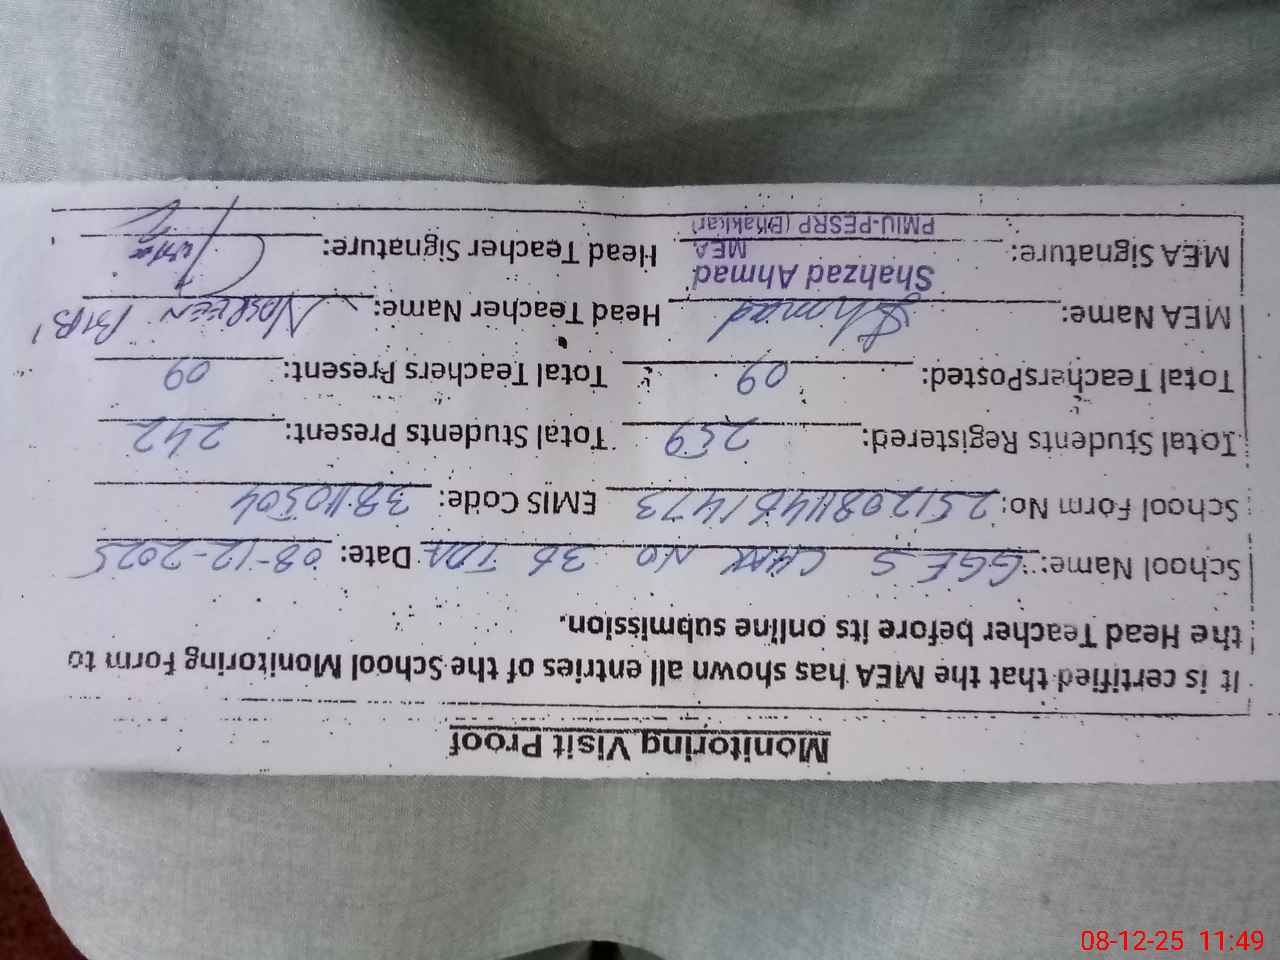 Monitoring Visit Proof
It is certified that the MEA has shown all entries of the School Monitoring Form to
the Head Teacher before its online submission.
School Name: GGES CHAK NO 36 TDA Date: 08-12-2025
School Form No: EMIS Code: 38110504
Total Students Registered: 259 Total Students Present: 242
Total Teachers Posted: 09 Total Teachers Present: 09
MEA Name: Head Teacher Name: NASREEN BIBI
Shahzad Ahmad
MEA Signature: MEA Head Teacher Signature:
PMIU-PESRP (Bhakkar)
08-12-25 11:49